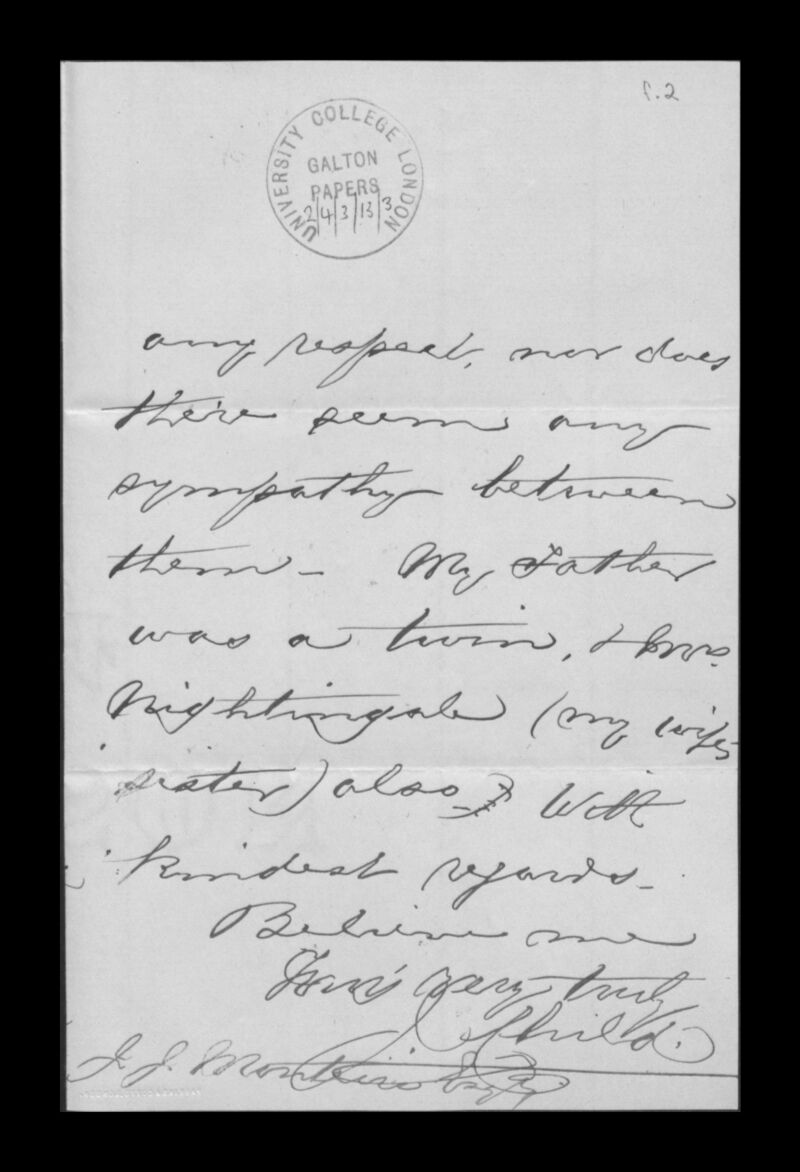 f.2
UNIVERSITY COLLEGE LONDON
GALTON
PAPERS
2/4/3/13/3
any respect, nor does
there seem any
sympathy between
them - My Father
was a twin, & Mrs.
Nightingale (my wifes
sister) also With
kindest regards -
Believe me
Your's very truly
Child.
J. J. Monteiro Esqr